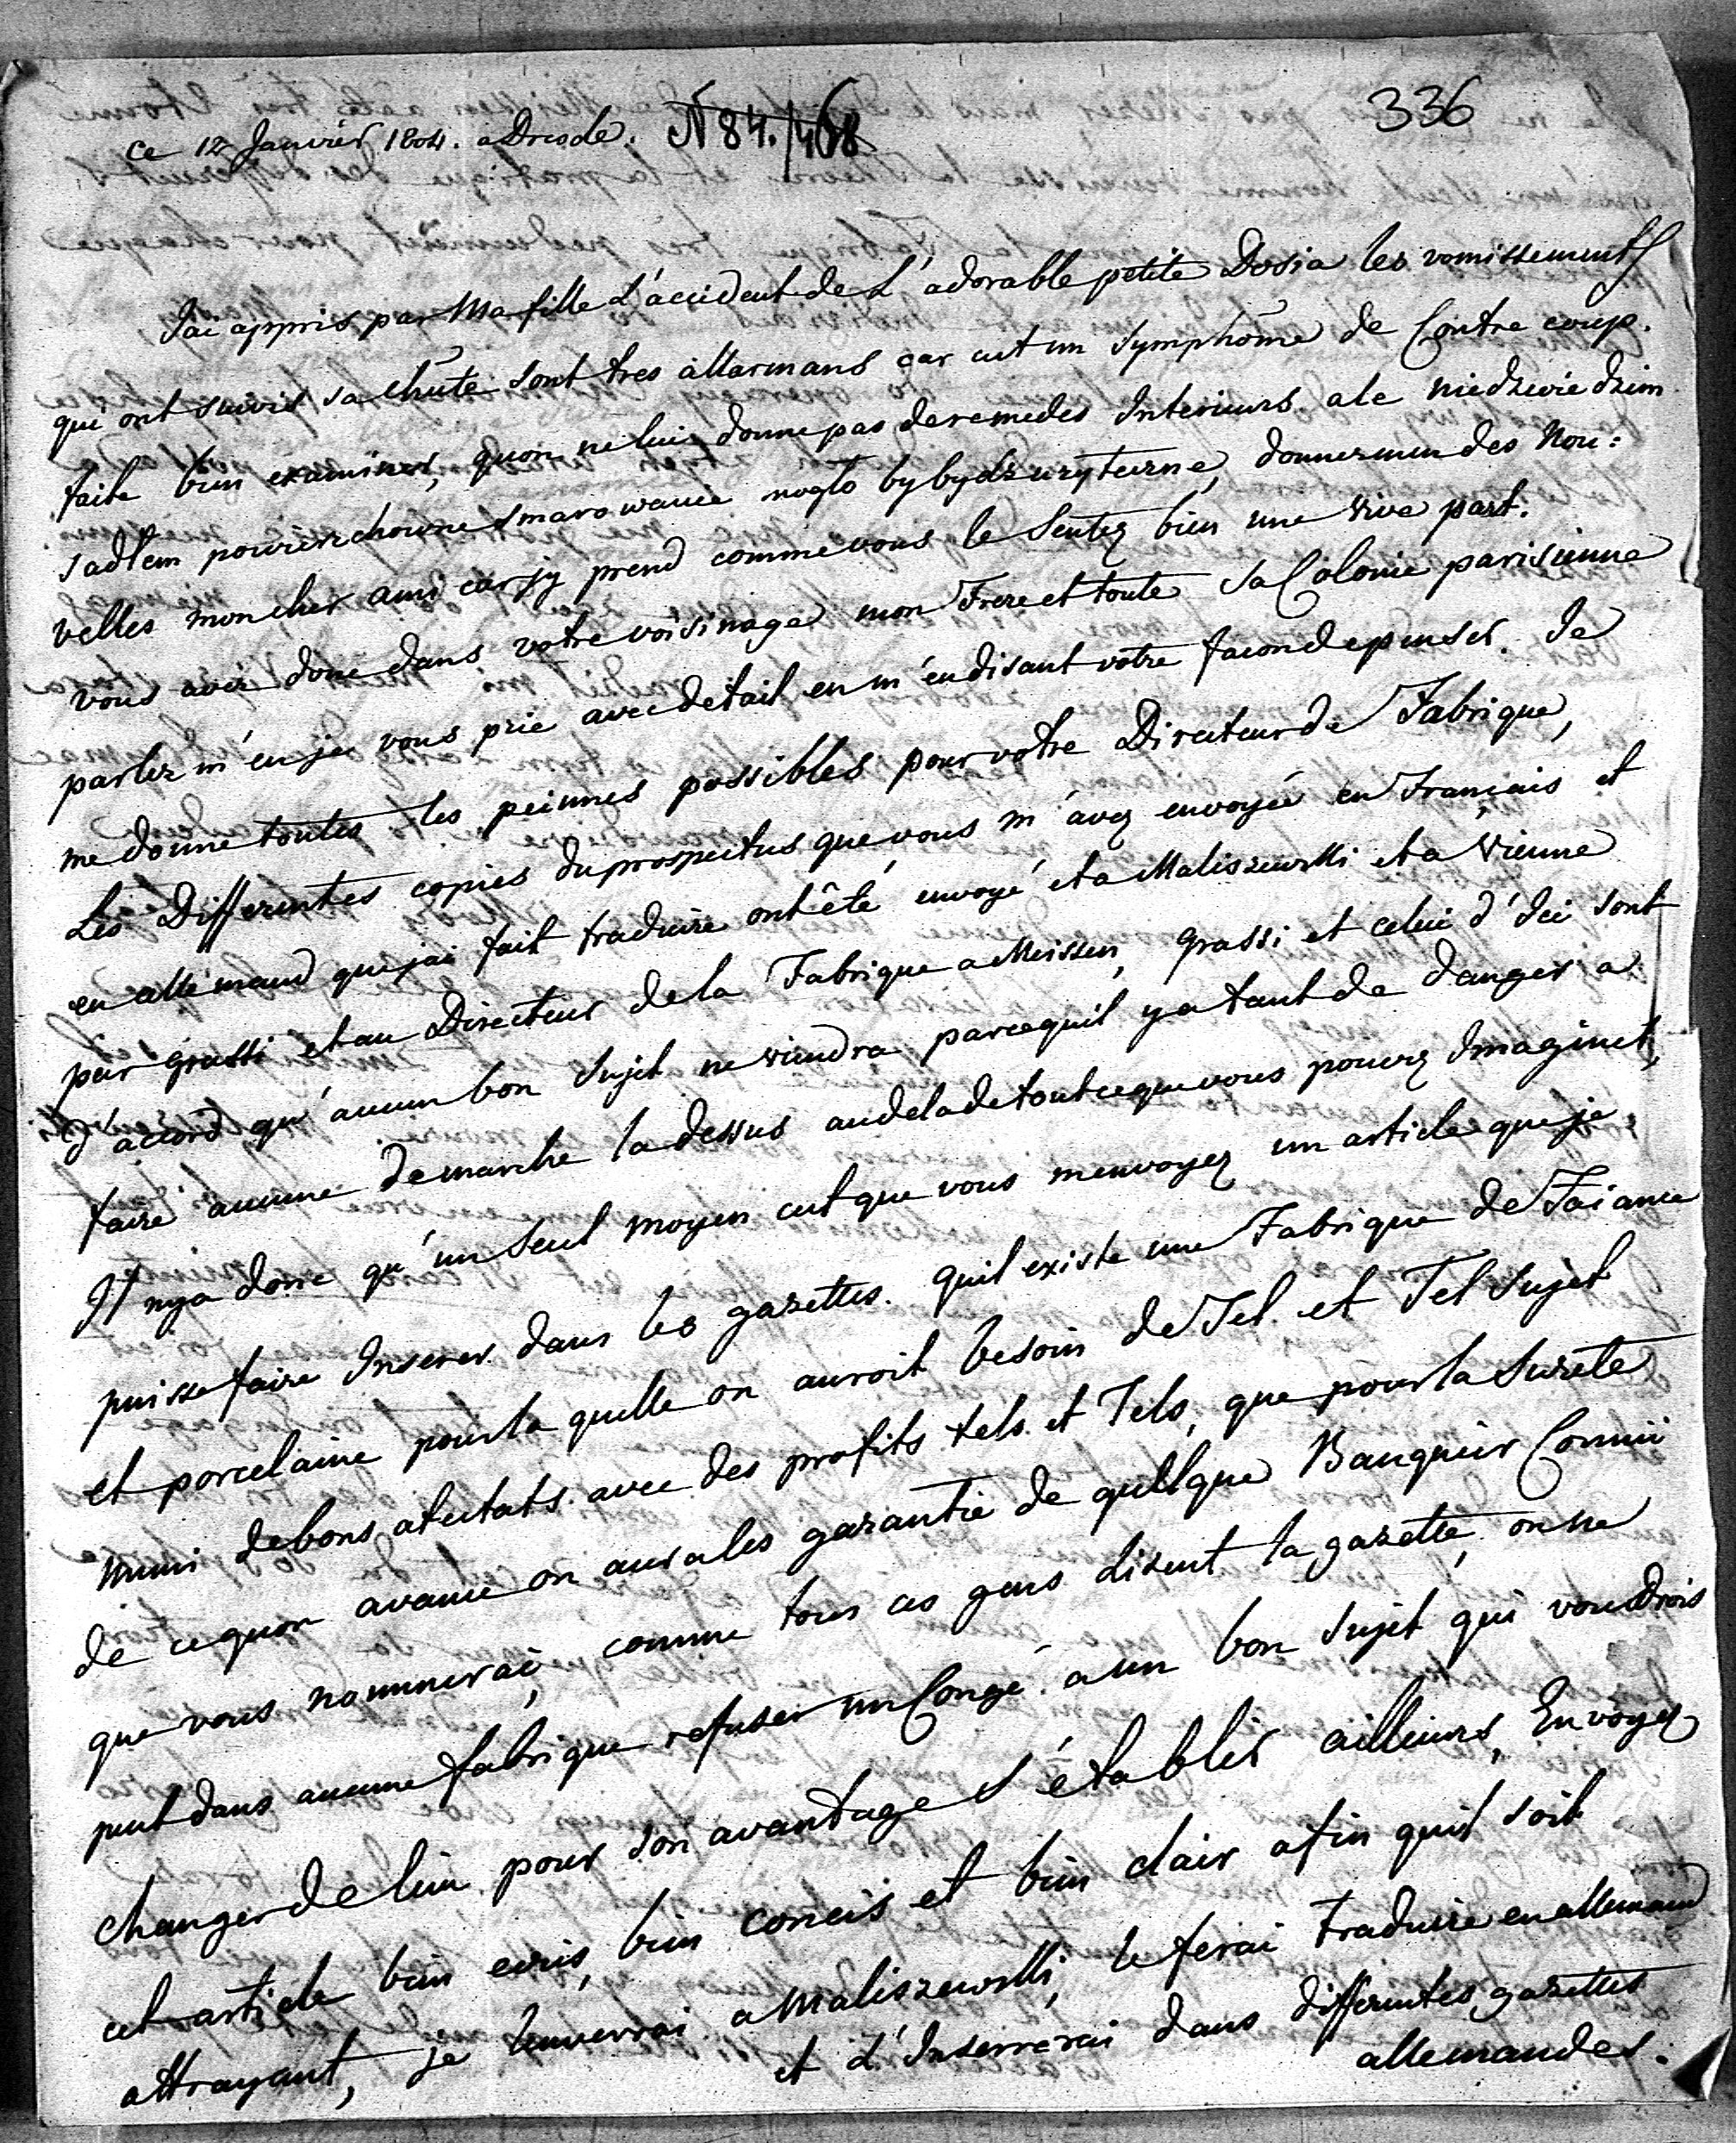 336
ce 12 Janvier 1804. a Dresde. N 84./468
Jai appris par Ma fille L'accident de L'adorable petite Dosia les vomissements
qui ont suivis sa chute sont tres allarmans car cest un Symphome de Contre coup.
faite bien examiner, quon ne lui donne pas de remedes Interieurs ale niedzwiedzim
sadłem powierzchowne smarowanie mogło by bydź uzyteczne, donnez men des Nou:
velles mon cher ami car jy prend comme vous le Sentez bien une vive part.
vous avéz donc dans votre voisinage mon Frere et toute Sa Colonie parisienne
parlez m'en je vous prie avec detail en m'en disant votre facon de penser. Je
me donne toutes les peinnes possibles pour votre Directeur de Fabrique,
Les Differentes copies du prospectus que vous m'avez envoyée en Français et
en allemand que jai fait traduire ont êté envoyé et a Maliszewski et a Vienne
par grassi et au Directeur de la Fabrique a Meissen, grassi et celui d'Ici sont
d'accord qu'aucun bon Sujet ne viendra parcequil y a tant de danger a
faire aucune demarche la dessus au dela de tout ce que vous pouvez Imaginer,
Il nya donc qu'un Seul moyen cest que vous menvoyez un article que je
puisse faire Inserer dans les gazettes. quil existe une Fabrique de Faiance
et porcelaine pour la quelle on auroit besoin de Tel et Tel Sujet
muni de bons atestats. avec des profits tels et Tels, que pour la Sureté
de ce quon avance on aura les garantie de quelque Banquier Connu
que vous nommerai, comme tous ces gens Lisent la gazette, on ne
peut dans aucune fabrique refuser un Congé a un bon Sujet qui voudrois
changer de lieu pour son avantage s'établir ailleurs, Envoyez
cet article bien ecris, bien concis et bien clair afin quil soit
attrayant, je lenverrai a Maliszewski, le ferai traduire en allemand
et L'Inserrerai dans differentes gazettes
allemandes.